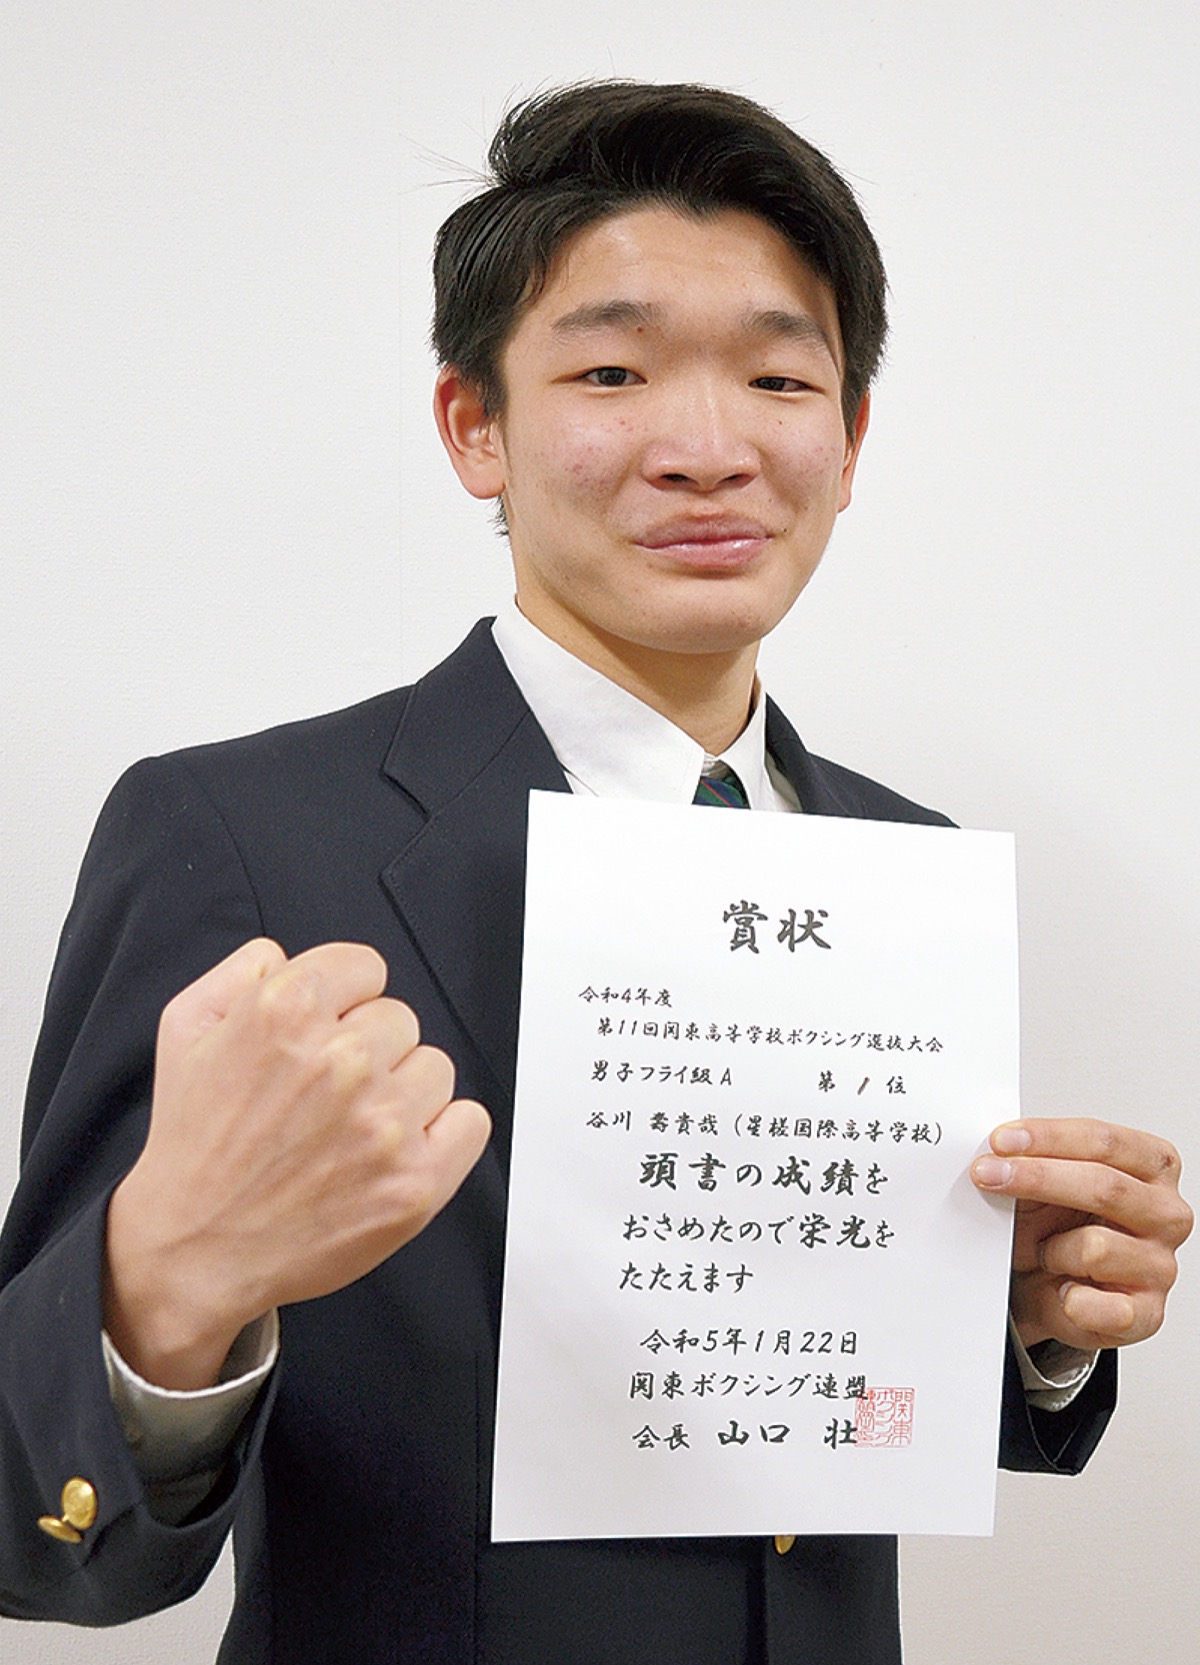 賞状
令和4年度
第11回関東高等学校ボクシング選抜大会
男子フライ級A 第1位
谷川 寿貴哉(星槎国際高等学校)
頭書の成績を
おさめたので栄光を
たたえます
令和5年1月22日
関東ボクシング連盟
会長 山口 壮